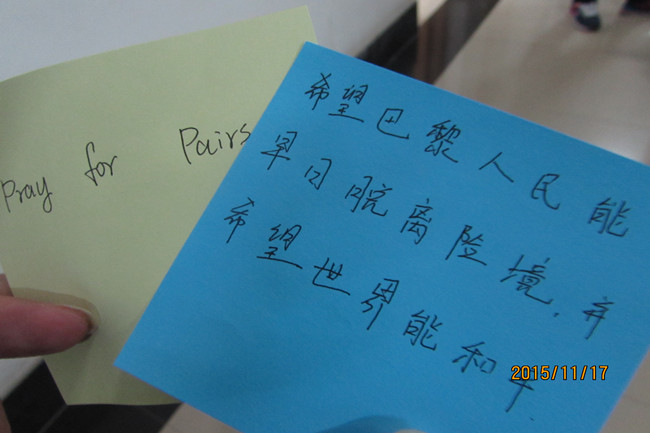 Pray for Pairs
希望巴黎人民能
早日脱离险境,并
希望世界能和平.
2015/11/17